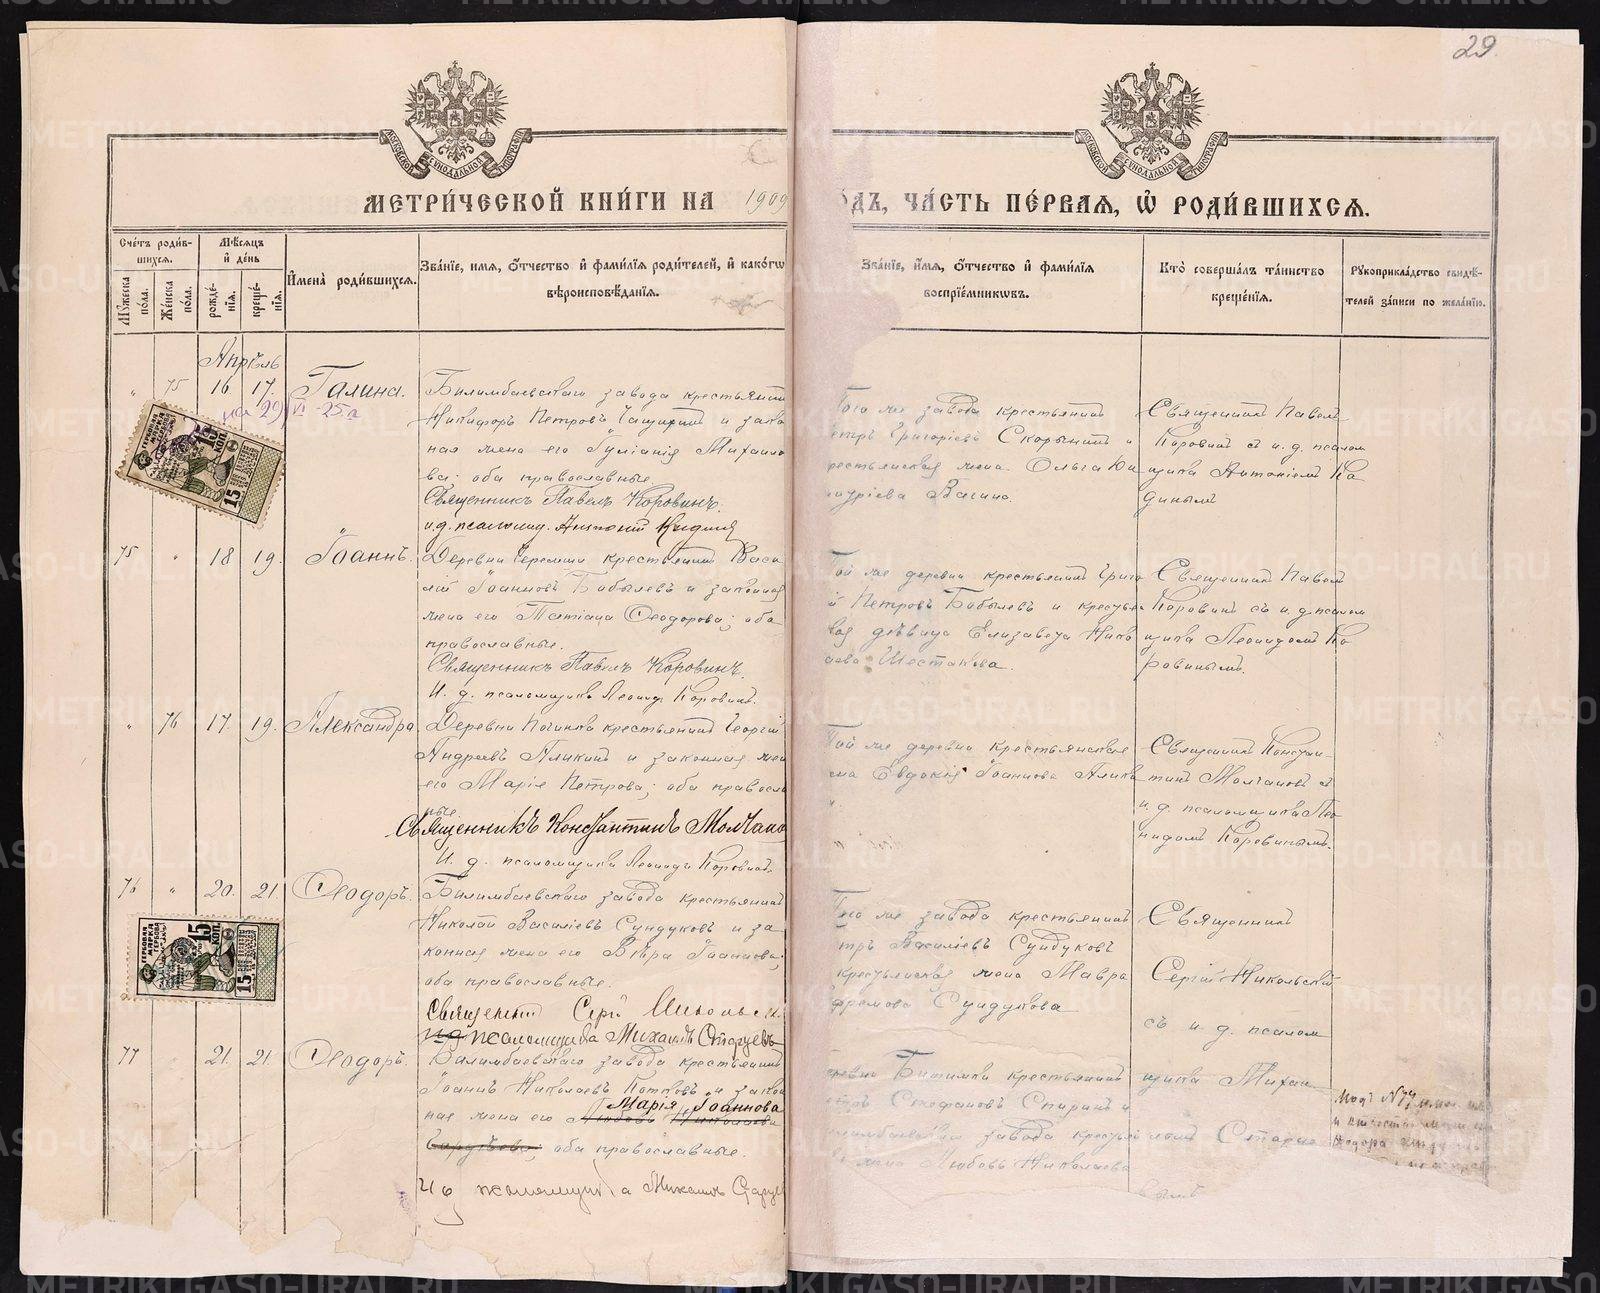 29.
МЕТРИ́ЧЕСКОЙ КНИ́ГИ НА 1909
ОДЪ, ЧА́СТЬ ПЕ́РВАЯ, Ѡ҆ РОДИ́ВШИХСЯ.
МОСКОВСКОЙ СѴНОДАЛЬНОЙ ТИПОГРАФІИ
МОСКОВСКОЙ СѴНОДАЛЬНОЙ ТИПОГРАФІИ
Сче́тъ роди́в-
шихся.
Му́жеска по́ла.
Же́нска по́ла.
Мѣ́сяцъ
и҆ де́нь
рожде́-
нїя.
креще́-
нїя.
И҆мена̀ роди́вшихся.
Зва́нїе, имя, о҆́тчество и҆ фами́лїя роди́телей, и҆ како́гѡ
вѣроисповѣ́данїя.
Зва́нїе, и҆́мя, о҆́тчество и҆ фами́лїя
воспрїе́мникѡвъ.
Кто̀ соверша́лъ та́инство
креще́нїя.
Рукоприкла́дство свидѣ́-
телей за́писи по жела́нїю.
Апрѣль
" 75 16 17. Галина.
на 29/VI-25 г.
Билимбаевскаго завода крестьянин
Никифоръ Петровъ и зако
ная жена его Іуліанія Михаило
ва; оба православные.
Священникъ Павелъ Коровинъ.
и.д. псаломщ. Антоній Кадинъ
Того же завода крестьянинъ
етръ Григоріевъ Скорынинъ и
рестьянская жена Ольга
Вагина.
Священникъ Павелъ
Коровинъ съ и. д. псалом
щика Антоніемъ Ка
динымъ
75 " 18 19. Іоаннъ.
Деревни Черемши крестьянинъ Васи
лій Іоанновъ Бабылевъ и законная
жена его Татіана Ѳеодорова; оба
православные.
Священникъ Павелъ Коровинъ.
И. д. псаломщика Леонидъ Коровинъ.
Той же деревни крестьянинъ Григо
й Петровъ Бабылевъ и крестья
кая дѣвица Елизавета Нико
аева Шестакова.
Священникъ Павелъ
Коровинъ съ и. д. псалом
щика Леонидомъ Ко
ровинымъ.
" 76 17. 19. Александра
Деревни Починка крестьянинъ Георгій
Андреевъ Аликинъ и законная жен
его Марія Петрова; оба правосла
вные.
Священникъ Константинъ Молчано
И. д. псаломщика Леонидъ Коровинъ.
Той же деревни крестьянская
ена Евдокія Іоаннова Алики
Священникъ Констан
тинъ Молчановъ съ
и. д. псаломщика Лео
нидомъ Коровинымъ.
76 " 20. 21. Ѳеодоръ.
Билимбаевскаго завода крестьянинъ
Николай Василіевъ Сундуковъ и за
конная жена его Вѣра Іоаннова;
оба православные.
Священникъ Сергій Никольскій
и д псаломщика Михаилъ Старцевъ
Того же завода крестьянинъ
тръ Василіевъ Сундуковъ
крестьянская жена Мавра
фремова Сундукова
Священникъ
Сергій Никольскій
съ и. д. псалом
щика Михаи
ломъ Старце
вымъ
77 21. 21. Ѳеодоръ.
Билимбаевскаго завода крестьянинъ
Іоаннъ Николаевъ и закон
ная жена его Любовь Николаева Марія Іоаннова
оба православные.
И д псаломщика Михаилъ Старцев
ревни Битимки крестьянинъ
Стефановъ Спиринъ и
лимбаевскаго завода крестья
жена Любовь Николаева
Подъ №77
и отчество
Ѳеодора
ГЕРБОВАЯ МАРКА 15 КОП.
15
ГЕРБОВАЯ МАРКА 15 КОП.
15
METRIKI.GASO-URAL.RU